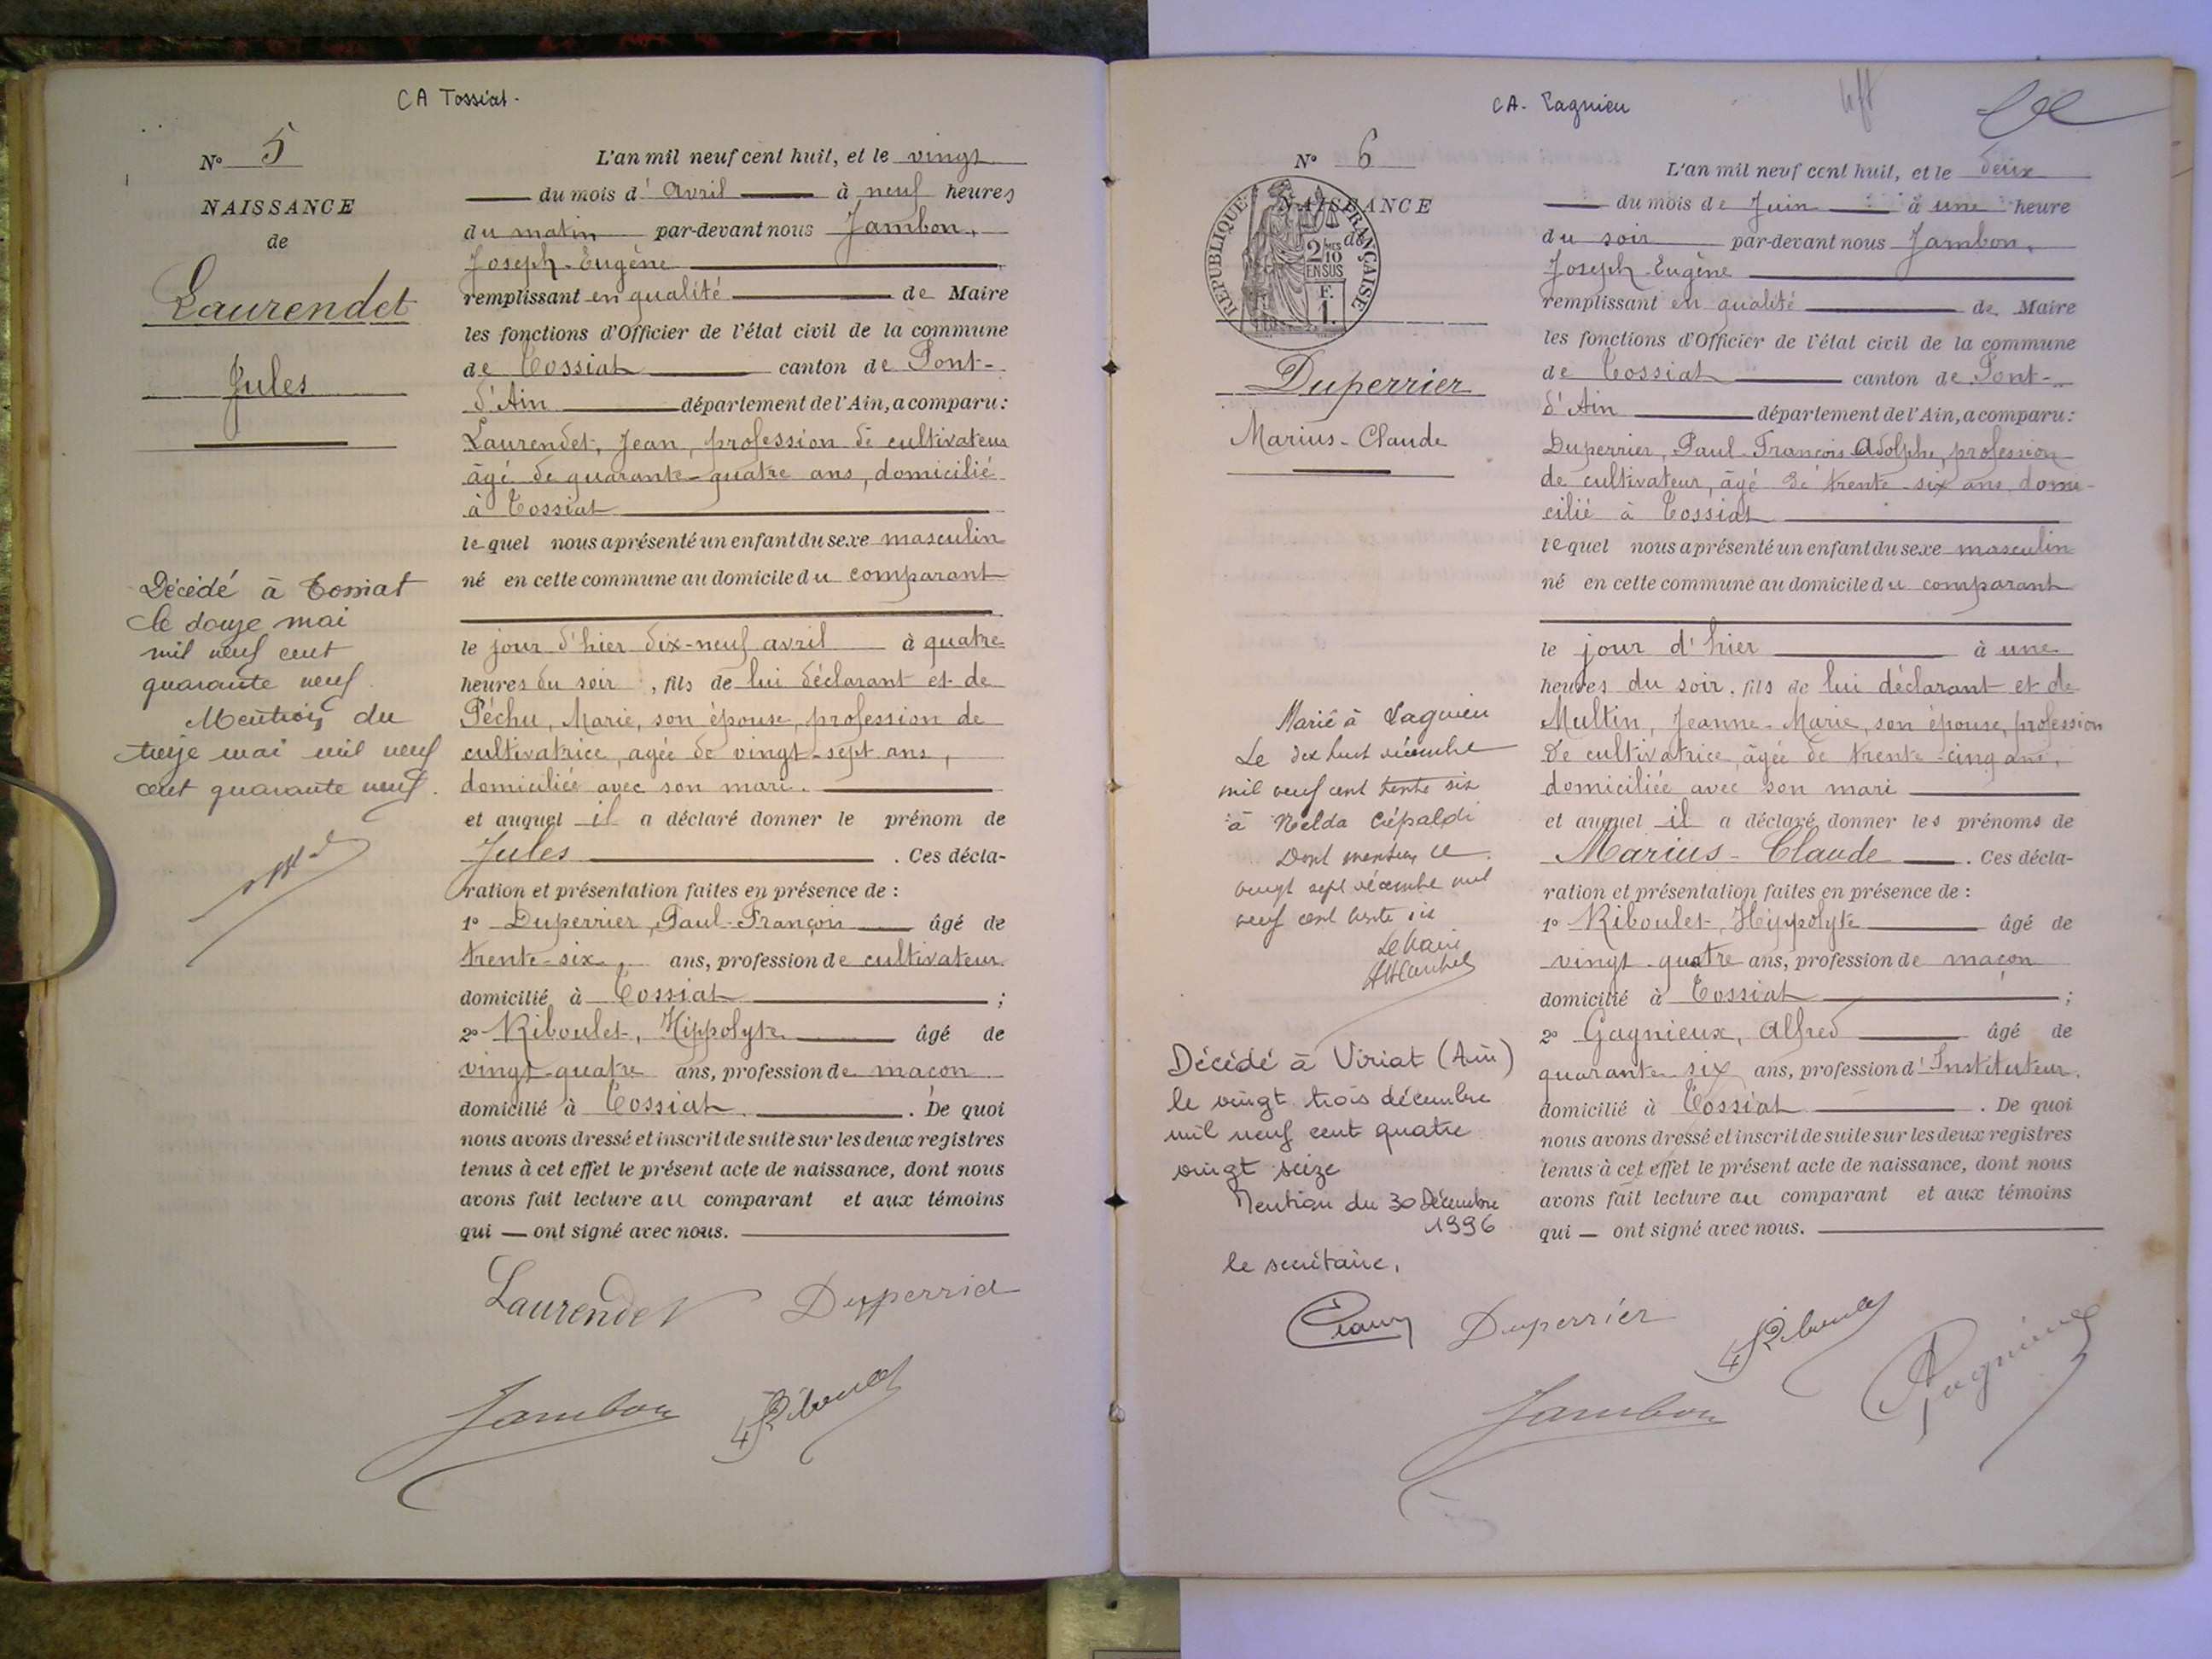 CA Tossiat.
N° 5
NAISSANCE
de
Laurendet
Jules
Décédé à Tossiat
le douze mai
mil neuf cent
quarante neuf.
Mention du
treize mai mil neuf
cent quarante neuf.
L'an mil neuf cent huit, et le vingt
du mois d'avril à neuf heures
du matin par-devant nous Jambon,
Joseph-Eugène
remplissant en qualité de Maire
les fonctions d'Officier de l'état civil de la commune
de Tossiat canton de Pont-
d'Ain département de l'Ain, a comparu :
Laurendet, Jean, profession de cultivateur
âgé de quarante-quatre ans, domicilié
à Tossiat
lequel nous a présenté un enfant du sexe masculin
né en cette commune au domicile du comparant
le jour d'hier dix-neuf avril à quatre
heures du soir, fils de lui déclarant et de
Péchu, Marie, son épouse, profession de
cultivatrice, agée de vingt-sept ans,
domiciliée avec son mari.
et auquel il a déclaré donner le prénom de
Jules. Ces décla-
ration et présentation faites en présence de :
1° Duperrier, Paul-François âgé de
trente-six, ans, profession de cultivateur
domicilié à Tossiat ;
2° Riboulet, Hippolyte âgé de
vingt-quatre ans, profession de maçon
domicilié à Tossiat. De quoi
nous avons dressé et inscrit de suite sur les deux registres
tenus à cet effet le présent acte de naissance, dont nous
avons fait lecture au comparant et aux témoins
qui — ont signé avec nous.
Laurendet Duperrier
Jambon H Riboulet
CA. Lagnieu
N° 6
NAISSANCE
de
REPUBLIQUE FRANÇAISE
2/10 MES
EN SUS
F.
1.
Duperrier
Marius-Claude
Marié à Lagnieu
Le dix huit décembre
mil neuf cent trente six
à Nelda Crépaldi
Dont mention ce
vingt sept décembre mil
neuf cent trente six
Le Maire
Décédé à Viriat (Ain)
le vingt trois décembre
mil neuf cent quatre
vingt seize
Mention du 30 Décembre
1996
le secrétaire,
L'an mil neuf cent huit, et le deux
du mois de Juin à une heure
du soir par-devant nous Jambon,
Joseph-Eugène
remplissant en qualité de Maire
les fonctions d'Officier de l'état civil de la commune
de Tossiat canton de Pont-
d'Ain département de l'Ain, a comparu :
Duperrier, Paul-François Adolphe, profession
de cultivateur, âgé de trente-six ans, domi-
cilié à Tossiat
lequel nous a présenté un enfant du sexe masculin
né en cette commune au domicile du comparant
le jour d'hier à une
heures du soir, fils de lui déclarant et de
Multin, Jeanne-Marie, son épouse, profession
de cultivatrice, âgée de trente-cinq ans,
domiciliée avec son mari
et auquel il a déclaré donner les prénoms de
Marius-Claude. Ces décla-
ration et présentation faites en présence de :
1° Riboulet, Hippolyte âgé de
vingt-quatre ans, profession de maçon
domicilié à Tossiat ;
2° Gagnieux, Alfred âgé de
quarante-six ans, profession d'Instituteur.
domicilié à Tossiat. De quoi
nous avons dressé et inscrit de suite sur les deux registres
tenus à cet effet le présent acte de naissance, dont nous
avons fait lecture au comparant et aux témoins
qui — ont signé avec nous.
Duperrier H Riboulet
Jambon A Gagnieux